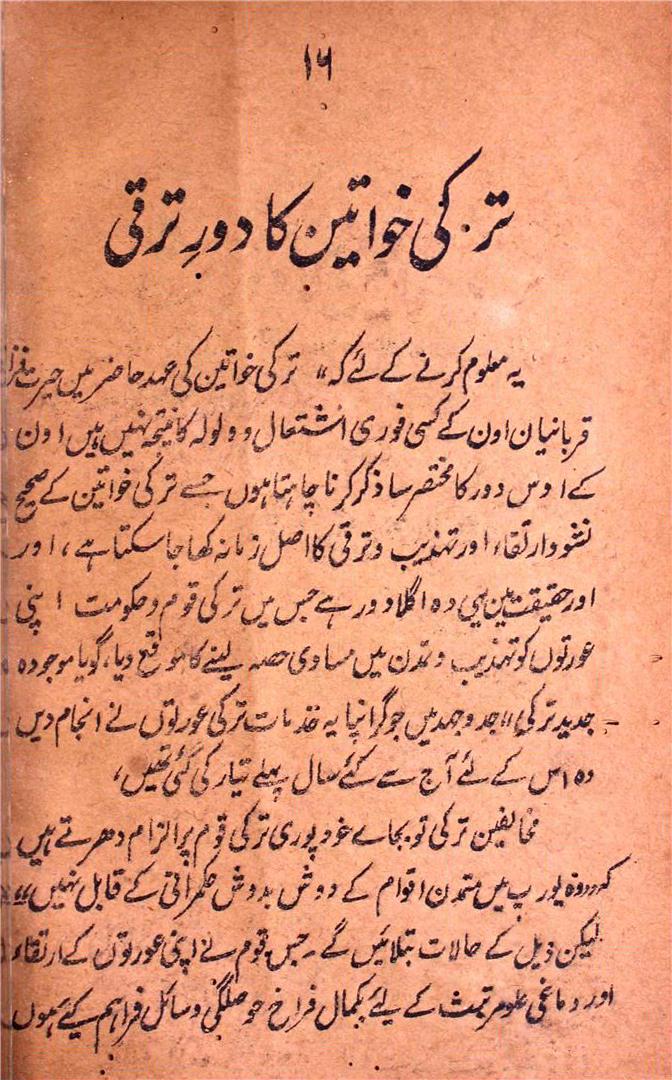 ۱۶
ترکی خواتین کا دورِ ترقی
یہ معلوم کرنے کے لئے کہ "ترکی خواتین کی عہد حاضر میں حیرت
قربانیان اون کے کسی فوری اشتعال و ولولہ کا نتیجہ نہیں ہیں اون
کے اوس دور کا مختصر سا ذکر کرنا چاہتا ہوں جسے ترکی خواتین کے صحیح
نشو وارتقاء اور تہذیب و ترقی کا اصل زمانہ کہا جا سکتا ہے، اور
اور حقیقت مین یہی وہ اگلا دور ہے جس میں ترکی قوم و حکومت اپنی
عورتوں کو تہذیب و تمدن میں مساوی حصہ لینے کا موقع دیا، گویا موجودہ
جدید ترکی" جدوجہد میں جو گرانپایہ خدمات ترکی عورتوں نے انجام دیں
وہ اس کے لئے آج سے کئے سال پہلے تیار کی گئی تھیں،
مخالفین ترکی تو بجاے خود پوری ترکی قوم پر الزام دھرتے ہیں
کہ وہ یورپ میں متمدن اقوام کے دوش بدوش حکمرانی کے قابل نہیں"
لیکن ذیل کے حالات بتلائیں گے۔ جس قوم نے اپنی عورتوں کے ارتقاء
اور دماغی علو کے لیئے بکمال فراخ حوصلگی وسائل فراہم کیئے ہموں